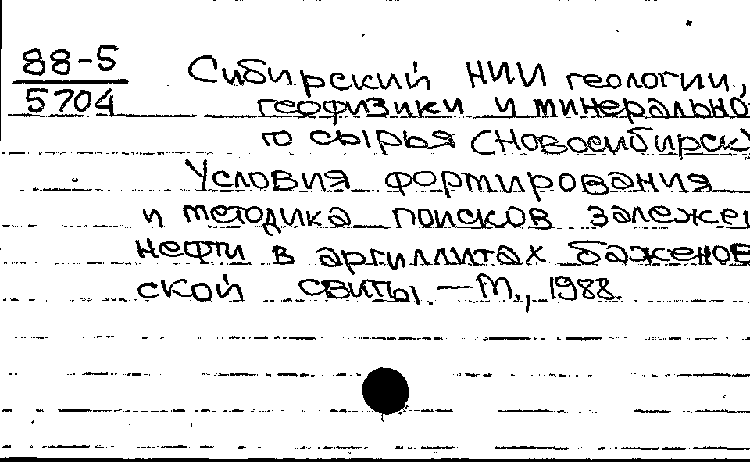 88-5
5704
Сибирский НИИ геологии,
геофизики и минерально
го сырья (Новосибирск
Условия формирования
и методика поисков залежей
нефти в аргиллитах баженов
ской свиты. — М., 1988.